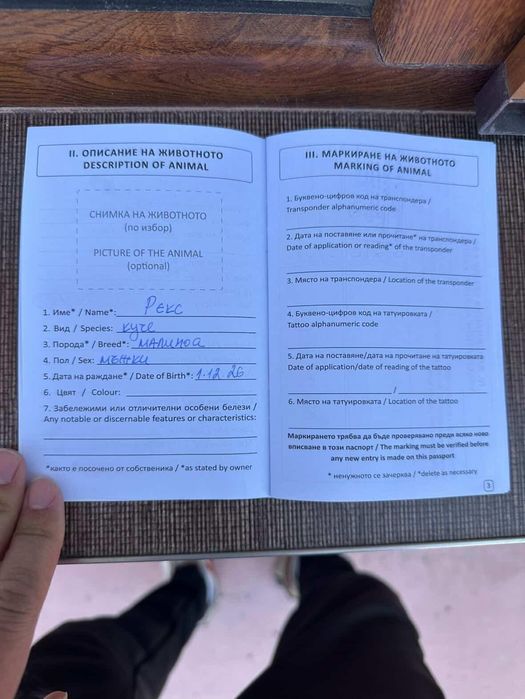 II. ОПИСАНИЕ НА ЖИВОТНОТО
DESCRIPTION OF ANIMAL
СНИМКА НА ЖИВОТНОТО
(по избор)
PICTURE OF THE ANIMAL
(optional)
1. Име* / Name*: Рекс
2. Вид / Species: куче
3. Порода* / Breed*: малиноа
4. Пол / Sex: мъжки
5. Дата на раждане* / Date of Birth*: 1.12.26
6. Цвят / Colour:
7. Забележими или отличителни особени белези /
Any notable or discernable features or characteristics:
*както е посочено от собственика / *as stated by owner
III. МАРКИРАНЕ НА ЖИВОТНОТО
MARKING OF ANIMAL
1. Буквено-цифров код на транспондера /
Transponder alphanumeric code
2. Дата на поставяне или прочитане* на транспондера /
Date of application or reading* of the transponder
3. Място на транспондера / Location of the transponder
4. Буквено-цифров код на татуировката /
Tattoo alphanumeric code
5. Дата на поставяне/дата на прочитане на татуировката
Date of application/date of reading of the tattoo
/
6. Място на татуировката / Location of the tattoo
Маркирането трябва да бъде проверявано преди всяко ново
вписване в този паспорт / The marking must be verified before
any new entry is made on this passport
* ненужното се зачерква / *delete as necessary
3